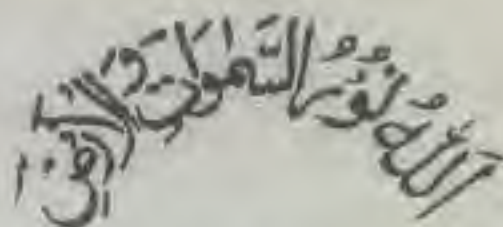 اَللّٰهُ نُوْرُ السَّمٰوٰتِ وَالْاَرْضِ